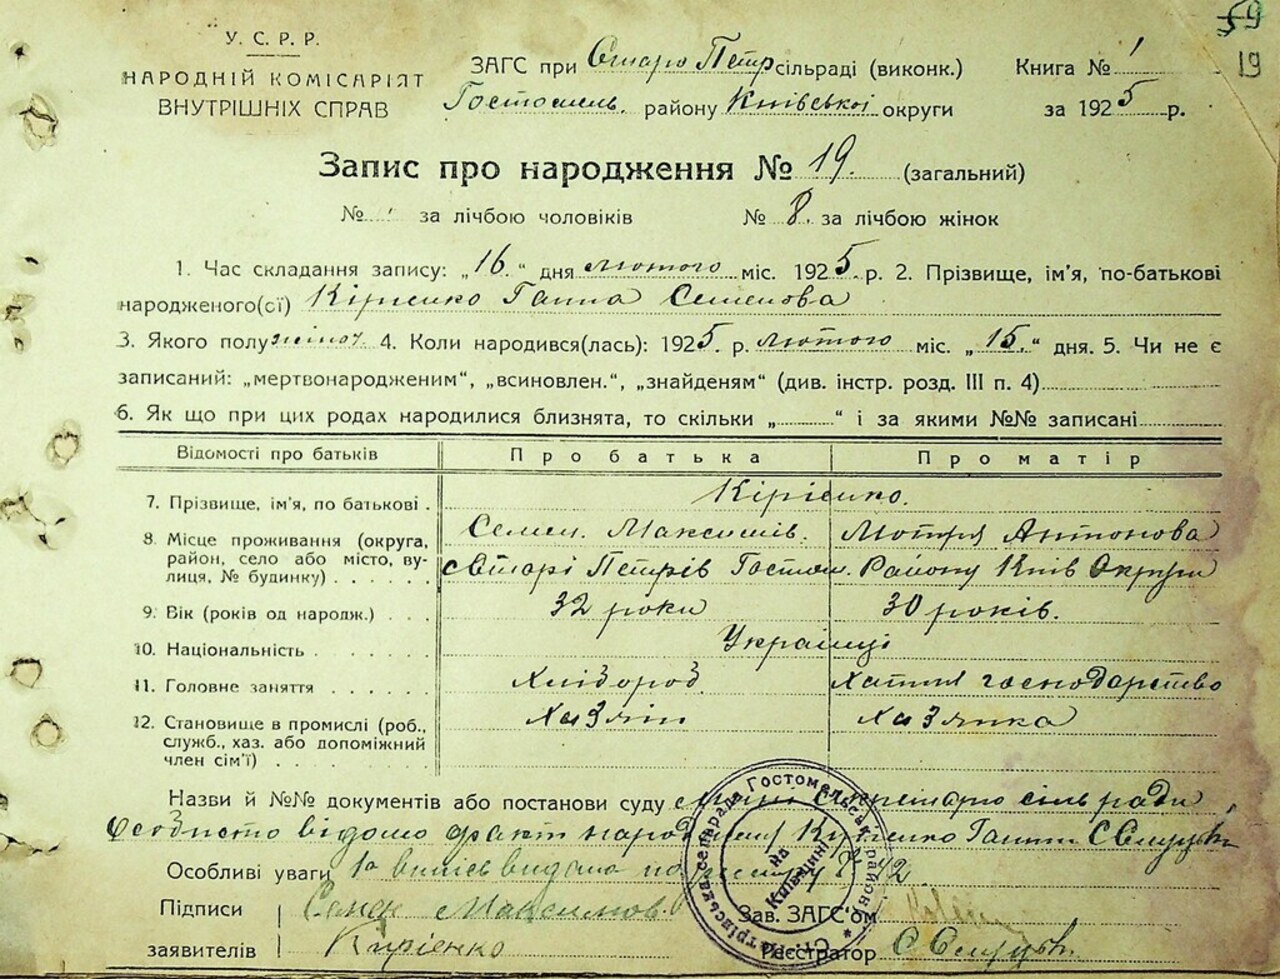 59
19
У. С. Р. Р.
НАРОДНІЙ КОМІСАРІЯТ
ВНУТРІШНІХ СПРАВ
ЗАГС при Старо Петр сільраді (виконк.) Книга № 1
Гостомель. району Київської округи за 1925 р.
Запис про народження № 19. (загальний)
№ за лічбою чоловіків № 8. за лічбою жінок
1. Час складання запису: „16.“ дня лютого міс. 1925 р. 2. Прізвище, ім'я, по-батькові
народженого(ої) Кірієнко Ганна Семенова
3. Якого полу жіноч 4. Коли народився(лась): 1925. р. лютого міс. „15.“ дня. 5. Чи не є
записаний: „мертвонародженим“, „всиновлен.“, „знайденям“ (див. інстр. розд. III п. 4)
6. Як що при цих родах народилися близнята, то скільки „ “ і за якими №№ записані
Відомості про батьків Про батька Про матір
7. Прізвище, ім'я, по батькові . Кірієнко.
Семен. Максимів. Мотря Антонова
8. Місце проживання (округа,
район, село або місто, ву-
лиця, № будинку) . . . . . . с Старі Петрів Гостом. Району Київ Округи
9. Вік (років од народж.) . . . 32 роки 30 років.
10. Національність . . . . . . . Українці
11. Головне заняття . . . . . . Хлібород. Хатнє господарство
12. Становище в промислі (роб.,
служб., хаз. або допоміжний
член сім'ї) . . . . . . . . Хазяїн Хазяйка
Назви й №№ документів або постанови суду сільради
Особисто відомо факт Кирієнко Ганни
Особливі уваги 1а випись видана по № 42
Підписи Максимов. Зав. ЗАГС'ом
заявителів Кирієнко Реєстратор
Гостомельськ. району
на Київщині